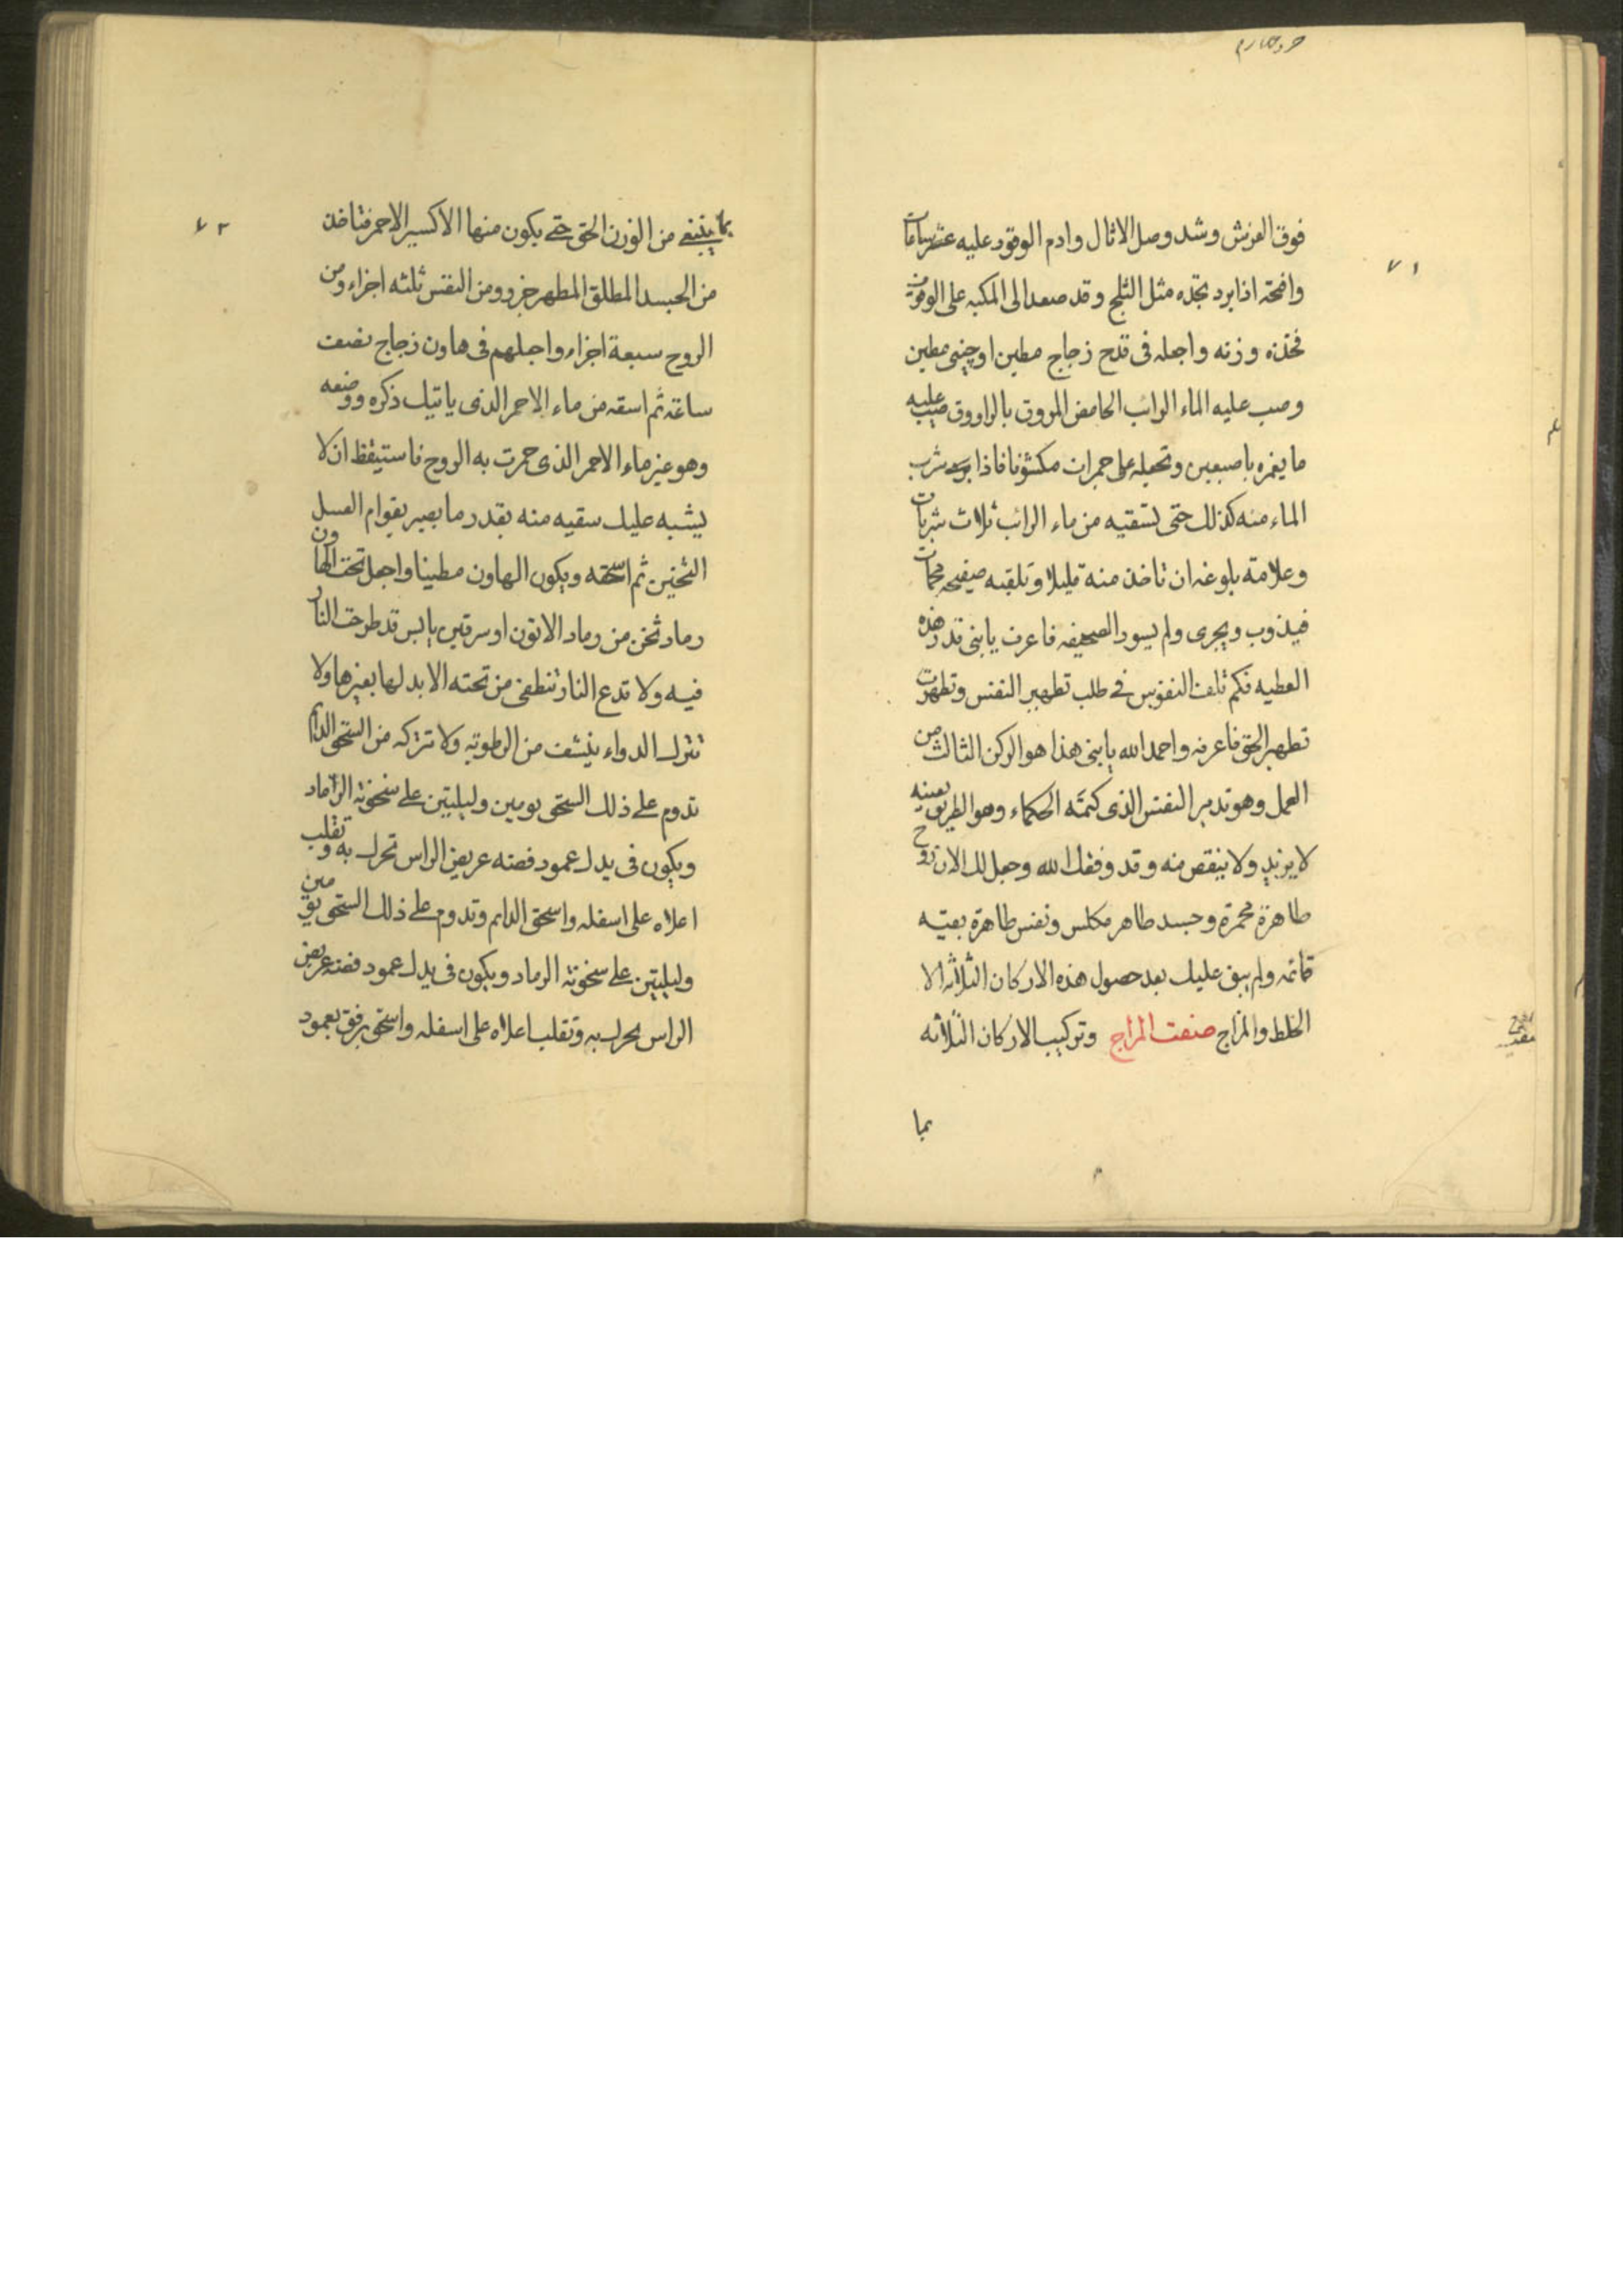 ٧١
فوق الفرش وشد وصل الاثال وادم الوقود عليه عشر ساعات
وافتحه اذا برد تجده مثل الثلج وقد صعد الى المكبه على الوقوف
فخذه وزنه واجعله فى قدح زجاج مطين او چينى مطين
وصب عليه الماء الرائب الحامض المروق بالراووق صب عليه
ما يغمره باصبعين وتجعله على جمرات مكشوفا فاذا شرب
الماء منه كذلك حتى تسقيه من ماء الرائب ثلاث شربات
وعلامة بلوغه ان تاخذ منه قليلا وتلقيه صفيحه محمات
فيذوب ويجرى ولم يسود الصحيفه فاعرف يا بنى قدر هذه
العطيه فكم تلفت النفوس فى طلب تطهير النفس وتطهرت
تطهير الحق فاعرفه واحمد الله يا بنى هذا هو الركن الثالث من
العمل وهو تدبير النفس الذى كتمته الحكماء وهو الطريق بعينه
لا يزيد ولا ينقص منه وقد وفقك الله وجعل لك الان روح
طاهرة محمرة وجسد طاهر مكلس ونفس طاهرة بقيه
قائمه ولم يبق عليك بعد حصول هذه الاركان الثلاثه الا
الخلط والمزاج صنعت المزاج وتركيب الاركان الثلاثه
بما
٧٢
بما ينبغى من الوزن الحق حتى يكون منها الاكسير الاحمر فتاخذ
من الجسد المطلق المطهر جزو ومن النفس ثلثه اجزاء ومن
الروح سبعة اجزاء واجعلهم فى هاون زجاج نصف
ساعة ثم اسقه من ماء الاحمر الذى ياتيك ذكره ووضعه
وهو غير ماء الاحمر الذى حمرت به الروح فاستيقظ ان لا
يشبه عليك سقيه منه بقدر ما يصير بقوام العسل
الثخين ثم اسحقه ويكون الهاون مطينا واجعل تحت الهاون
رماد ثخن من رماد الاتون او سرقين يابس قد طرحت النار
فيه ولا تدع النار تنطفى من تحته الا بدلها بغيرها ولا
تترك الدواء ينشف من الرطوبه ولا تتركه من السحق الدايم
تدوم على ذلك السحق يومين وليليتين على سخونة الرماد
ويكون فى يدك عمود فضه عريض الراس تحرك به وتقلب
اعلاه على اسفله واسحق الدايم وتدوم على ذلك السحق يومين
وليليتين على سخونة الرماد ويكون فى يدك عمود فضه عريض
الراس تحرك به وتقلب اعلاه على اسفله واسحق برفق بعمود